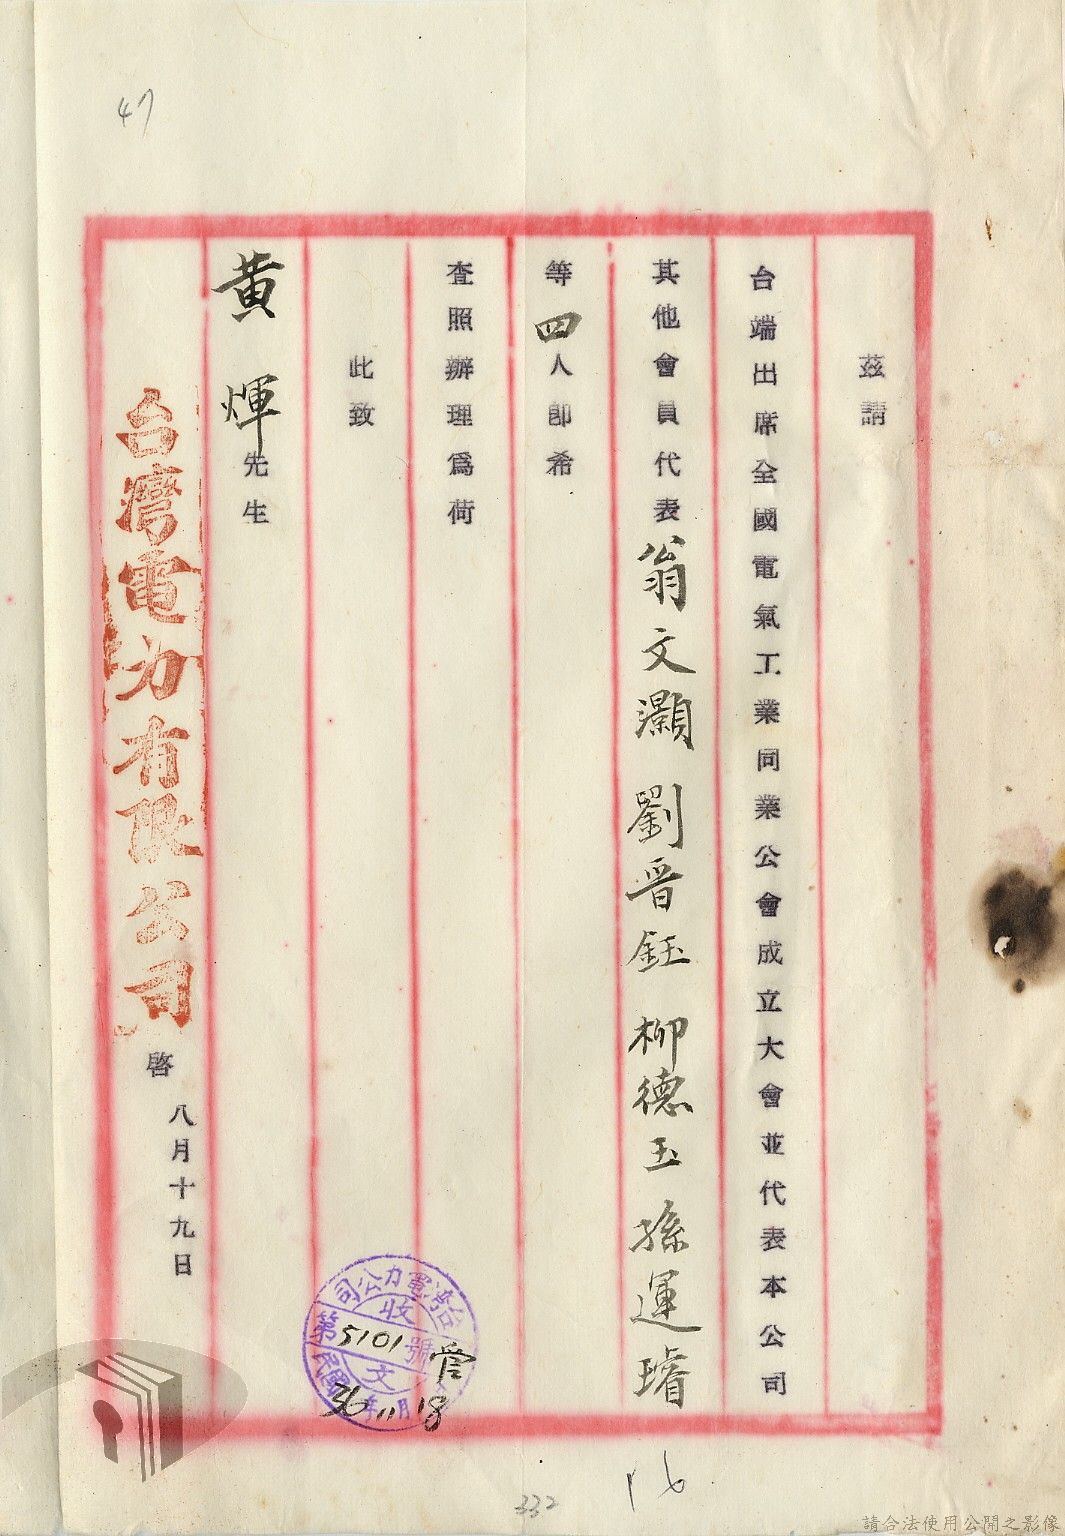 47
茲請
台端出席全國電氣工業同業公會成立大會並代表本公司
其他會員代表翁文灝 劉晋鈺 柳德玉 孫運璿
等四人即希
查照辦理爲荷
此致
黄煇先生
台灣電力有限公司 啓 八月十九日
台灣電力公司
收
第5101號
文
管
民國36年11月18
16
332
請合法使用公開之影像